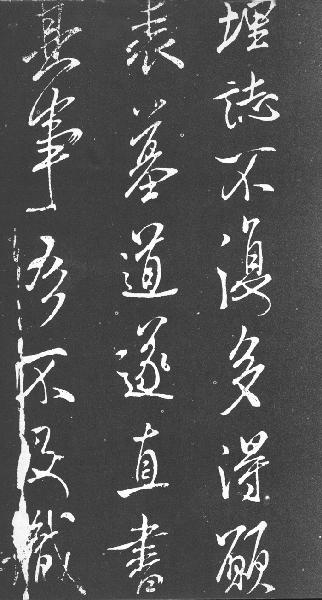 埋誌不復多得願
表墓道遂直書
其事不及識